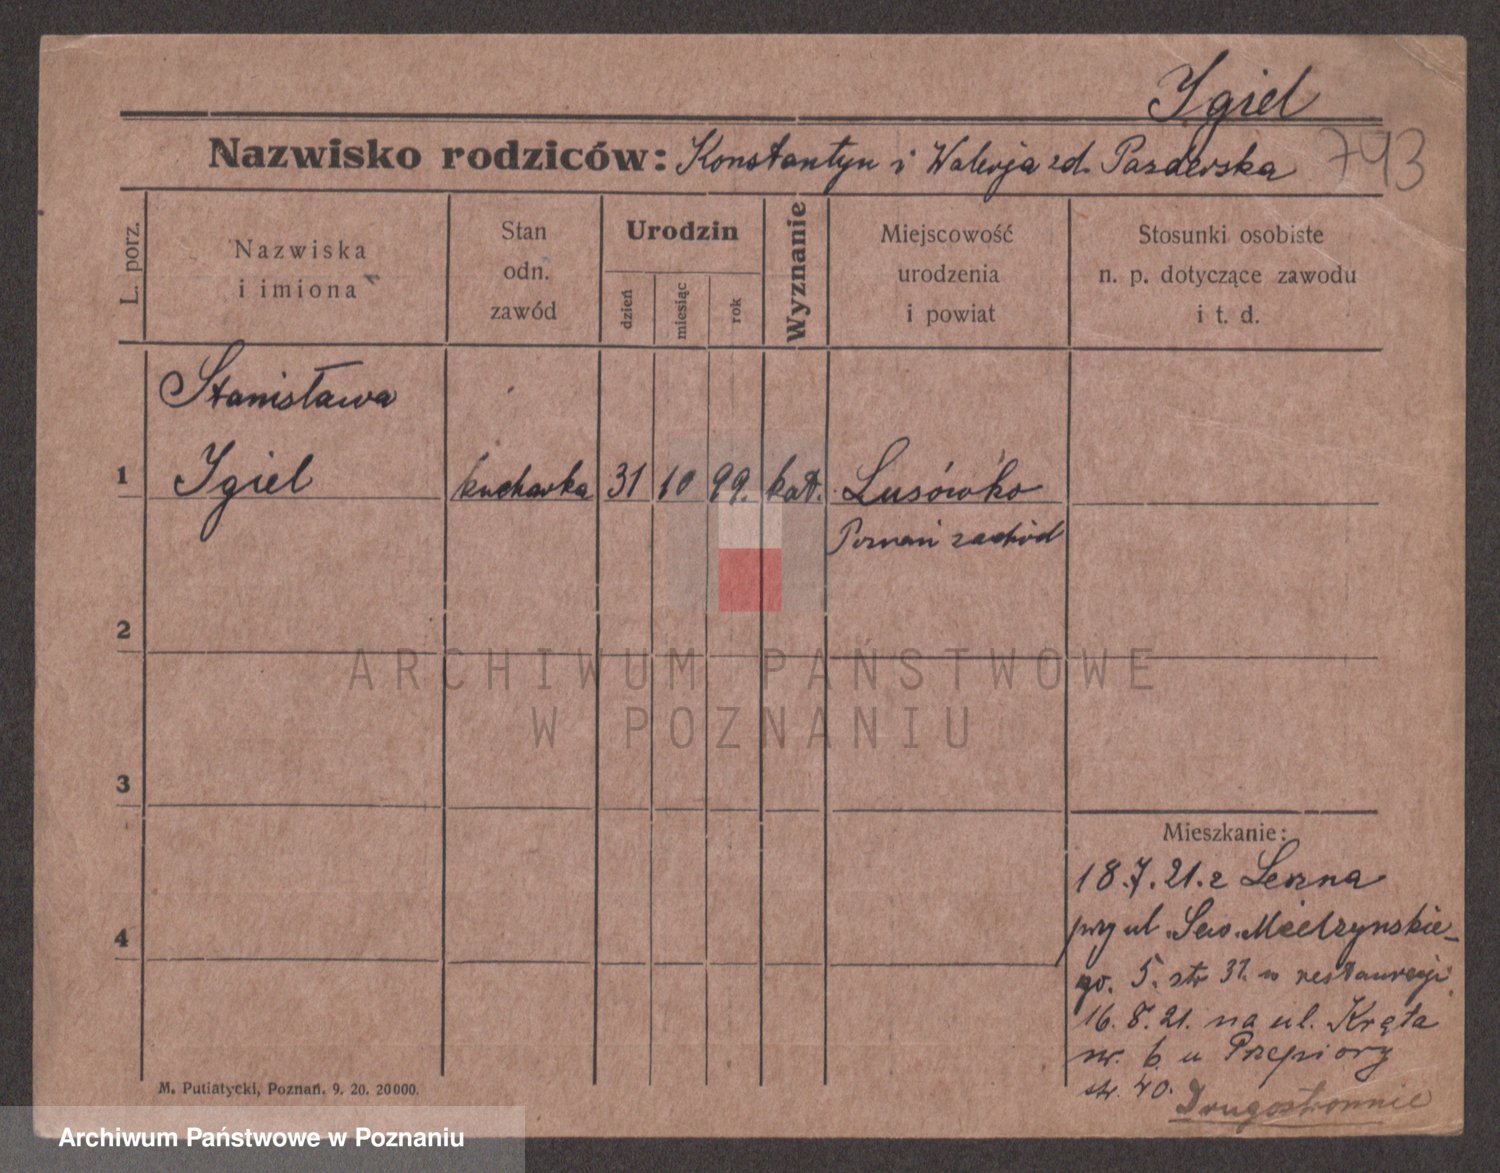 Igiel
Nazwisko rodziców: Konstantyn i Walerja zd. Pazderska 793
L. porz.
Nazwiska
i imiona
Stan
odn.
zawód
Urodzin
dzień
miesiąc
rok
Wyznanie
Miejscowość
urodzenia
i powiat
Stosunki osobiste
n. p. dotyczące zawodu
i t. d.
Stanisława
1 Igiel kucharka 31 10 99. kat. Lusówko
Poznań zachód
2
3
4
Mieszkanie:
18.7.21. z Leszna
przy ul. Sew. Mielzynskie-
go. 5. str 31. w restauracji
16. 8. 21. na ul. Kręta
nr. 6 u Przepiory
str. 40.
Drugostronnie
M. Putiatycki, Poznań. 9. 20. 20000.
ARCHIWUM PAŃSTWOWE
W POZNANIU
Archiwum Państwowe w Poznaniu